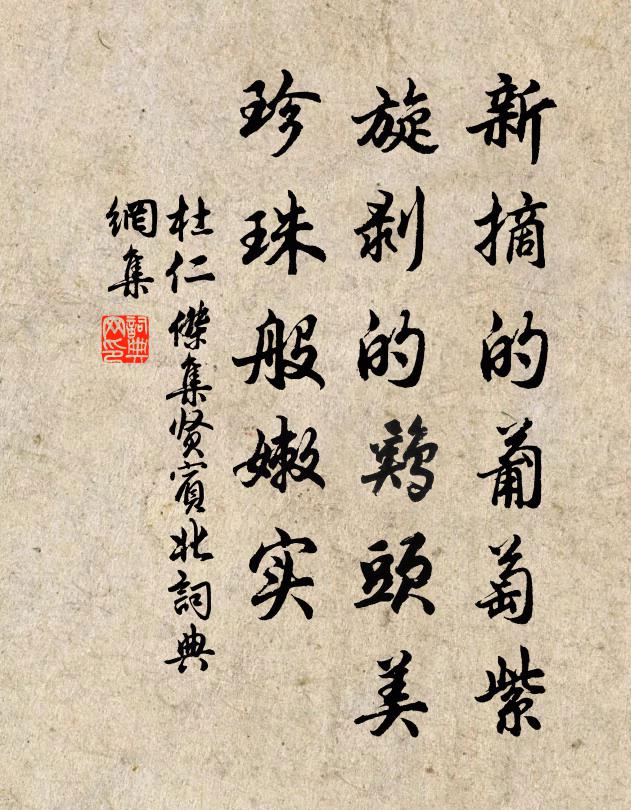 新摘的葡萄紫
旋剥的鷄頭美
珍珠般嫩实
杜仁傑集贤宾北詞典
網集
詞典網印